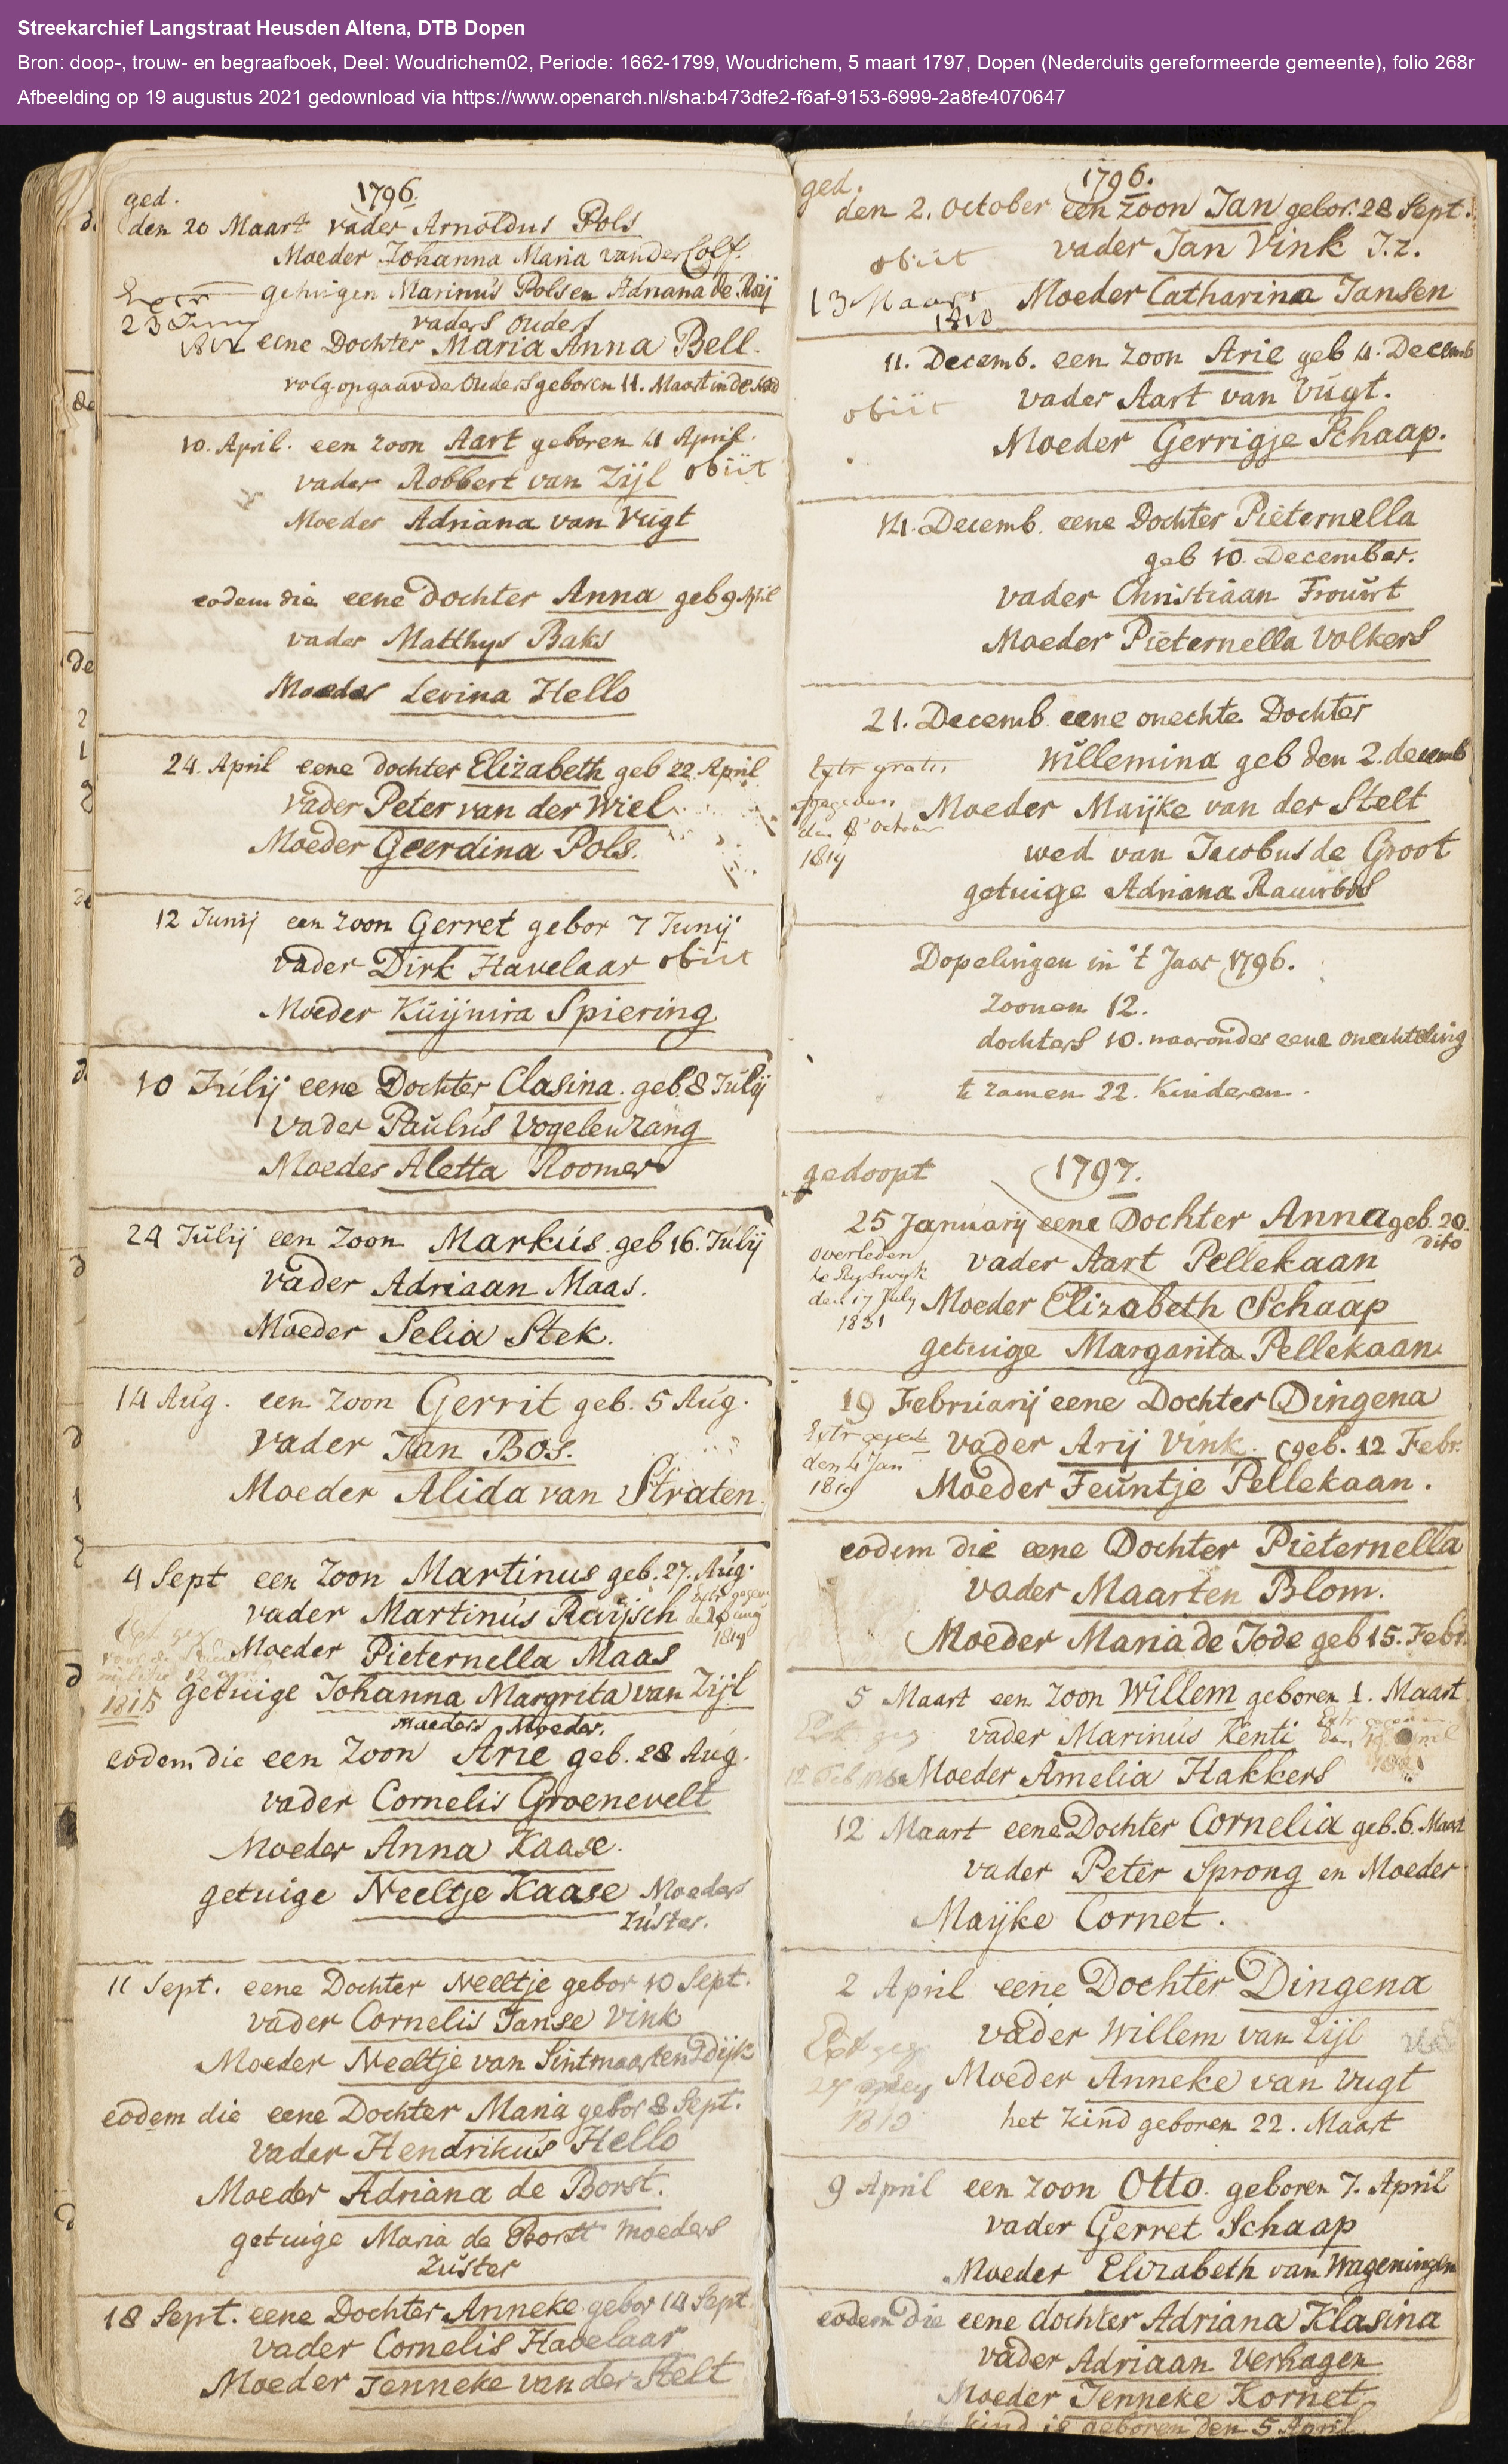 Streekarchief Langstraat Heusden Altena, DTB Dopen
Bron: doop-, trouw- en begraafboek, Deel: Woudrichem02, Periode: 1662-1799, Woudrichem, 5 maart 1797, Dopen (Nederduits gereformeerde gemeente), folio 268r
Afbeelding op 19 augustus 2021 gedownload via https://www.openarch.nl/sha:b473dfe2-f6af-9153-6999-2a8fe4070647
ged. 1796.
den 20 Maart vader Arnoldus Pols
Moeder Johanna Maria vander Colff.
getuigen Marinus Pols en Adriana de Roij
vaders Ouders
23 Juny
1812 eene Dochter Maria Anna Bell.
volg opgaav de Ouders geboren 11. Maart in de
10. April. een zoon Aart geboren 4 April.
vader Robbert van Zijl obiit
Moeder Adriana van Vugt
eodem die eene Dochter Anna geb 9 April
vader Matthys Baks
Moeder Levina Hello
24. April eene dochter Elizabeth geb 22 April
vader Peter van der Wiel
Moeder Geerdina Pols.
12 Junij een zoon Gerret gebor 7 Junij
vader Dirk Havelaar obiit
Moeder Kuijnira Spiering
10 Julij eene Dochter Clasina. geb. 8 Julij
vader Paulus Vogelenzang
Moeder Aletta Roomer
24 Julij een Zoon Markus geb 16. Julij
vader Adriaan Maas.
Moeder Selia Stek.
14 Aug. een zoon Gerrit geb. 5 Aug.
vader Jan Bos.
Moeder Alida van Straten.
4 Sept een Zoon Martinus geb. 27. Aug.
vader Martinus Raijsch
1819
Moeder Pieternella Maas
1815 getuige Johanna Margrita van Zijl
moeders Moeder.
eodem die een Zoon Arie geb. 28 Aug.
vader Cornelis Groenevelt
Moeder Anna Kaase.
getuige Neeltje Kaase Moeders
Zuster.
11 Sept. eene Dochter Neeltje gebor 10 Sept.
vader Cornelis Janse Vink
Moeder Neeltje van Sintmaartensdijk
eodem die eene Dochter Maria gebor 8 Sept.
vader Hendrikus Hello
Moeder Adriana de Borst.
getuige Maria de Borst moeders
Zuster
18 Sept. eene Dochter Anneke gebor 14 Sept.
vader Cornelis Havelaar
Moeder Jenneke van der Stelt
ged. 1796.
den 2. October een zoon Jan gebor. 28 Sept.
obiit vader Jan Vink J.z.
13 Maart Moeder Catharina Jansen
1810
11. Decemb. een zoon Arie geb 4. Decemb
obiit vader Aart van Vugt.
Moeder Gerrigje Schaap.
14. Decemb. eene Dochter Pieternella
geb 10. December.
vader Christiaan Frouwt
Moeder Pieternella Volkers
21. Decemb. eene onechte Dochter
Extr gratis Willemina geb den 2. decemb
afgegeven Moeder Maijke van der Stelt
den 8 October
1819 wed van Jacobus de Groot
getuige Adriana Rauwbos
Dopelingen in 't Jaar 1796.
zoonen 12.
dochters 10. waaronder eene onechteling
te zamen 22. Kinderen.
gedoopt 1797.
25 January eene Dochter Anna geb. 20.
dito
overleden vader Aart Pellekaan
te Ryswyk
den 17 July Moeder Elizabeth Schaap
1831
getuige Margarita Pellekaan
19 Februarij eene Dochter Dingena
Extr vader Arij Vink. (geb. 12 Febr.
den 4 Jan
1819 Moeder Feuntje Pellekaan.
eodem die eene Dochter Pieternella
vader Maarten Blom.
Moeder Maria de Jode geb 15. Febr.
5 Maart een Zoon Willem geboren 1. Maart
vader Marinus Kenti
Moeder Amelia Hakkers
12 Maart eene Dochter Cornelia geb. 6. Maart
vader Peter Sprong en Moeder
Maijke Cornet.
2 April eene Dochter Dingena
vader Willem van Zijl
Moeder Anneke van Vugt
het Kind geboren 22. Maart
9 April een zoon Otto. geboren 7. April
vader Gerret Schaap
Moeder Elizabeth van Wageningen
eodem die eene dochter Adriana Klasina
vader Adriaan Verhagen
Moeder Jenneke Kornet
het Kind is geboren den 5 April